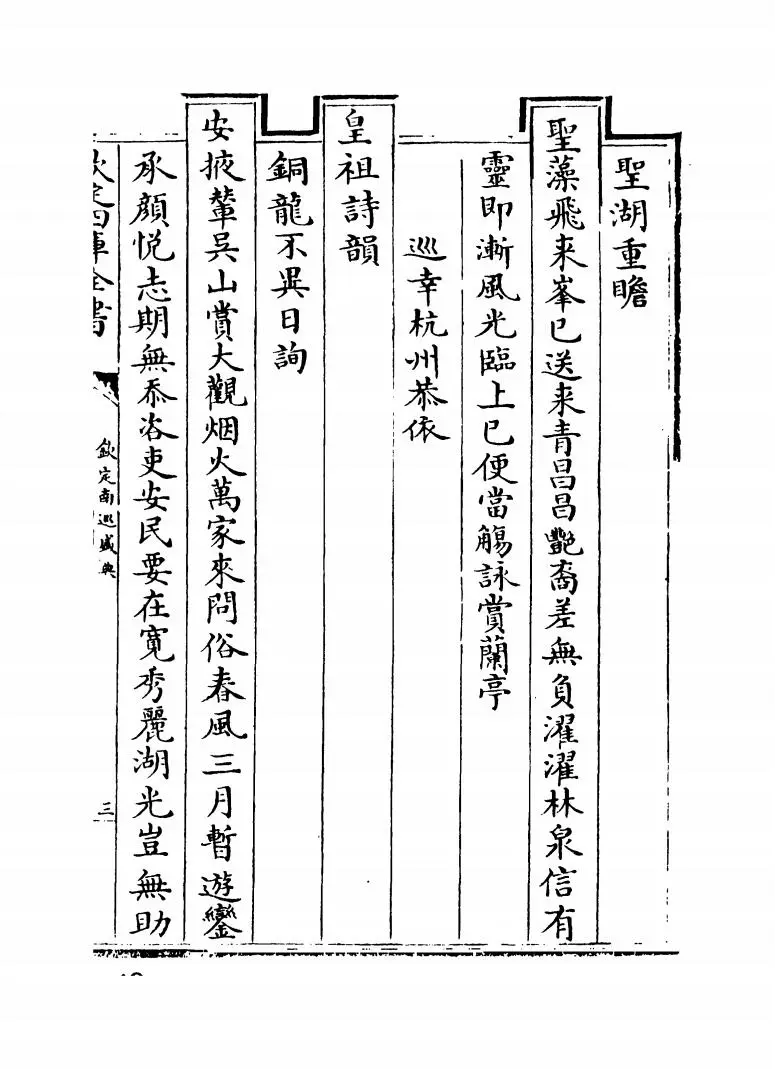 聖湖重瞻
聖藻飛来峯已送来青昌昌艷裔差無負濯濯林泉信有
靈即漸風光臨上巳便當觴詠賞蘭亭
巡幸杭州恭依
皇祖詩韻
銅龍不異日詢
安掖輦吳山賞大觀烟火萬家來問俗春風三月暫遊鑾
承顔悦志期無忝洛吏安民要在寛秀麗湖光豈無助
欽定四庫全書
欽定南巡盛典
三